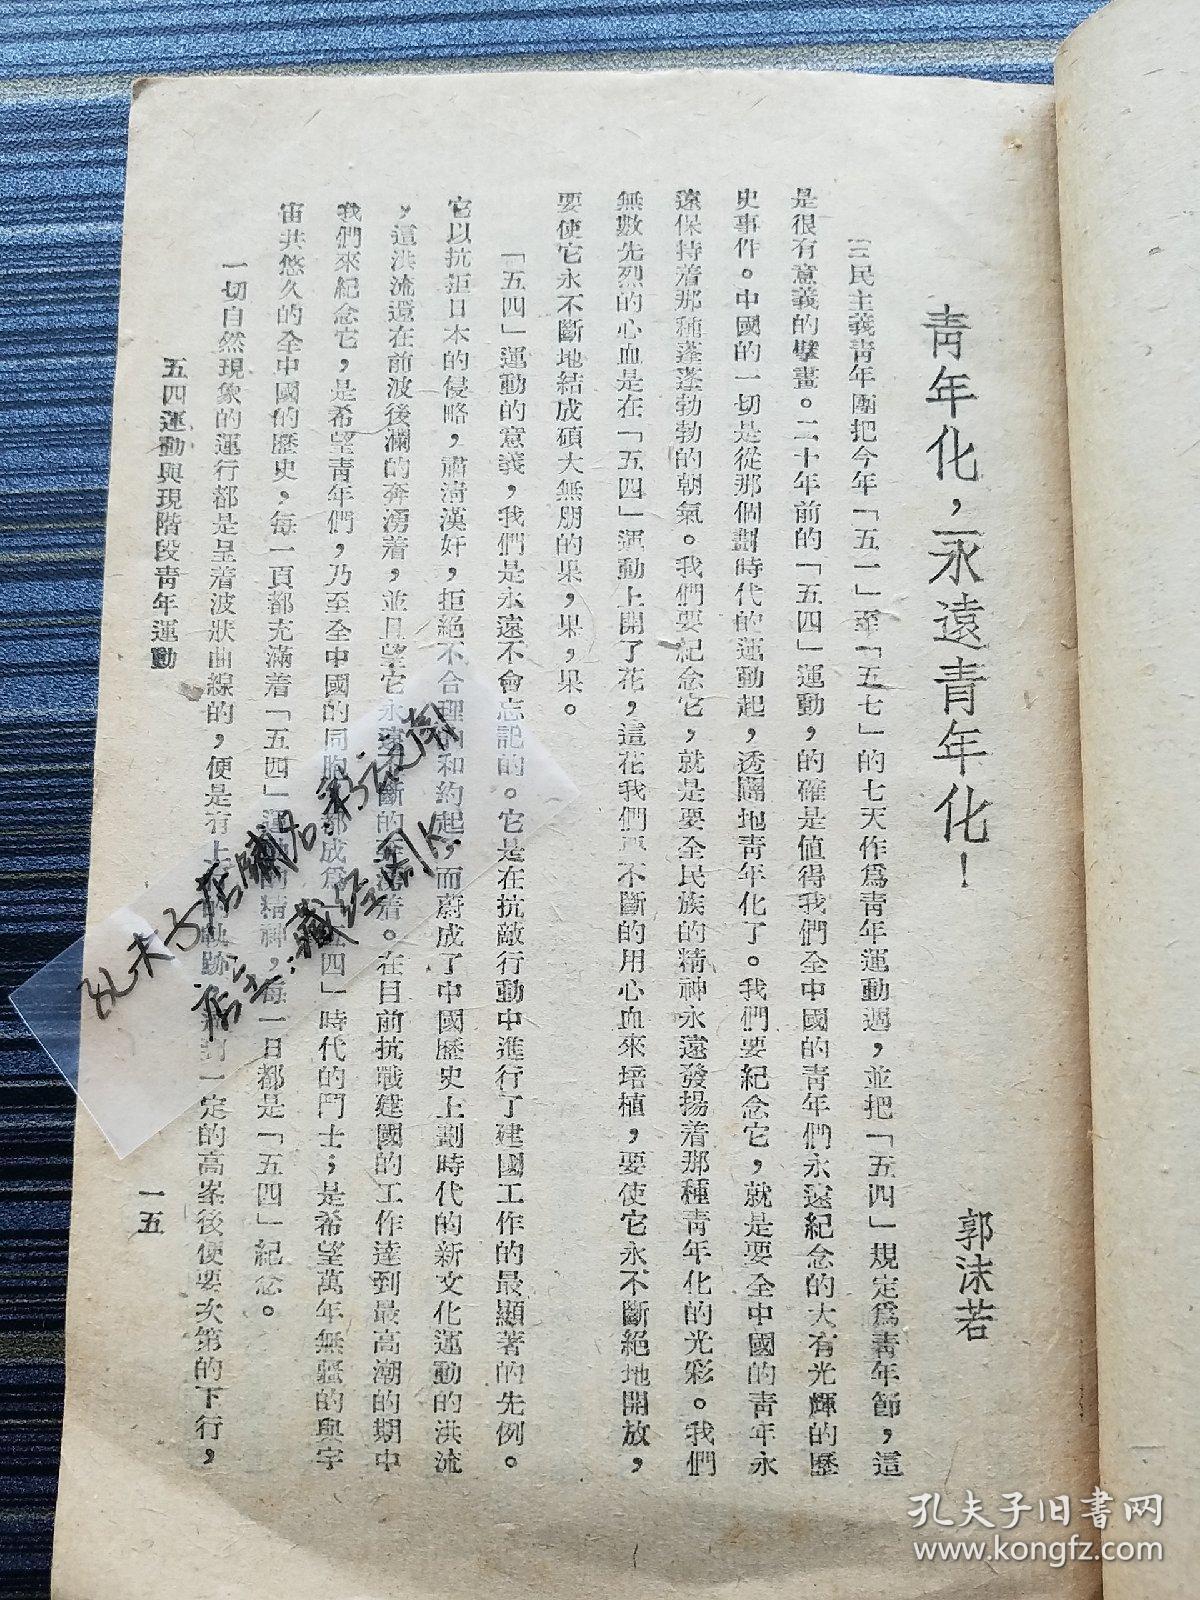 青年化，永遠青年化！
郭沫若
三民主義青年團把今年「五一」至「五七」的七天作爲青年運動週，並把「五四」規定爲青年節，這
是很有意義的擘畫。二十年前的「五四」運動，的確是値得我們全中國的青年們永遠紀念的大有光輝的歷
史事件。中國的一切是從那個劃時代的運動起，透闢地青年化了。我們要紀念它，就是要全中國的青年永
遠保持着那種蓬蓬勃勃的朝氣。我們要紀念它，就是要全民族的精神永遠發揚着那種青年化的光彩。我們
無數先烈的心血是在「五四」運動上開了花，這花我們要不斷的用心血來培植，要使它永不斷絕地開放，
要使它永不斷地結成碩大無朋的果，果，果。
「五四」運動的意義，我們是永遠不會忘記的。它是在抗敵行動中進行了建國工作的最顯著的先例。
它以抗拒日本的侵略，肅淸漢奸，拒絕不合理的和約起，而蔚成了中國歷史上劃時代的新文化運動的洪流
，這洪流還在前波後瀾的奔湧着，並且望它永遠不斷的奔流着。在目前抗戰建國的工作達到最高潮的期中
我們來紀念它，是希望青年們，乃至全中國的同胞都成爲「五四」時代的鬥士；是希望萬年無疆的與宇
宙共悠久的全中國的歷史，每一頁都充滿着「五四」運動的精神，每一日都是「五四」紀念。
一切自然現象的運行都是呈着波狀曲線的，便是有上的軌跡到一定的高峯後便要次第的下行，
五四運動與現階段青年運動
一五
孔夫子店鋪名:
店主:藏经阁K
孔夫子旧书网
www.kongfz.com